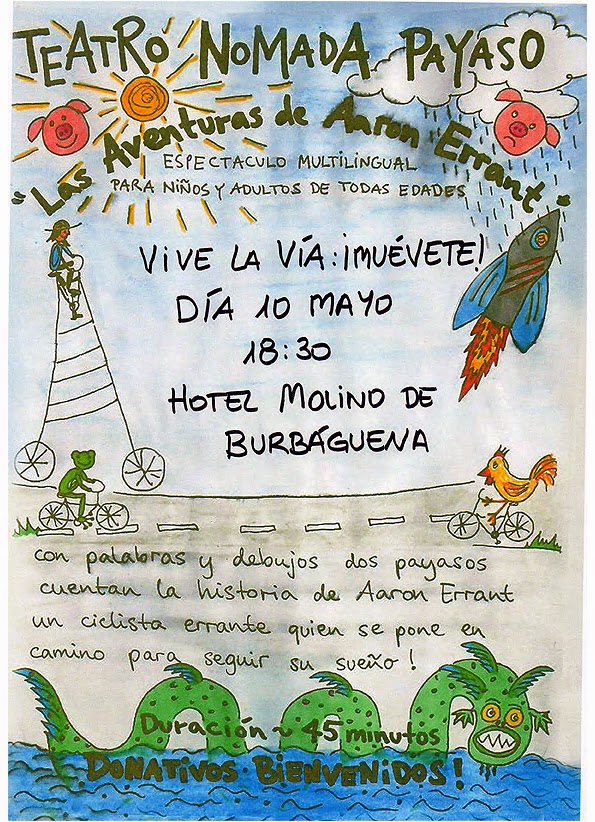 TEATRO NOMADA PAYASO
"Las Aventuras de Aaron Errant"
ESPECTACULO MULTILINGUAL
PARA NIÑOS Y ADULTOS DE TODAS EDADES
VIVE LA VÍA: ¡MUÉVETE!
DÍA 10 MAYO
18:30
HOTEL MOLINO DE
BURBÁGUENA
con palabras y debujos dos payasos
cuentan la historia de Aaron Errant
un ciclista errante quien se pone en
camino para seguir su sueño!
Duración ~ 45 minutos
DONATIVOS BIENVENIDOS!